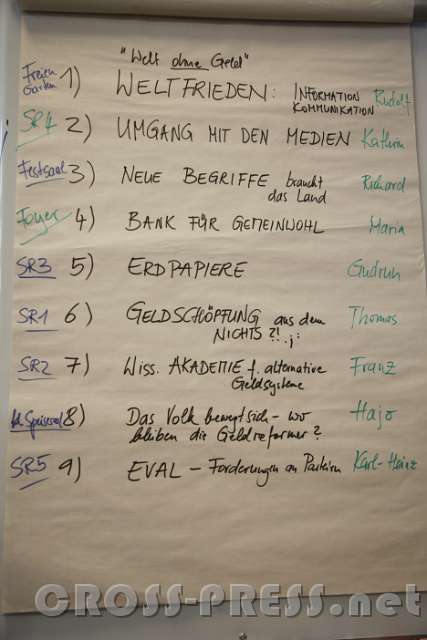 "Welt ohne Geld"
Freien Garten 1) WELTFRIEDEN: INFORMATION KOMMUNIKATION Rudolf
SR4 2) UMGANG MIT DEN MEDIEN Kathrin
Festsaal 3) NEUE BEGRIFFE braucht Richard
das Land
Foyer 4) BANK FÜR GEMEINWOHL Maria
SR3 5) ERDPAPIERE Gudrun
SR1 6) GELDSCHÖPFUNG aus dem Thomas
NICHTS?!
SR2 7) WISS. AKADEMIE f. alternative Franz
Geldsysteme
Speisesaal 8) Das Volk bewegt sich - wo Hajo
bleiben die Geldreformer?
SR5 9) EVAL - Forderungen an Parteien Karl-Heinz
CROSS-PRESS.net